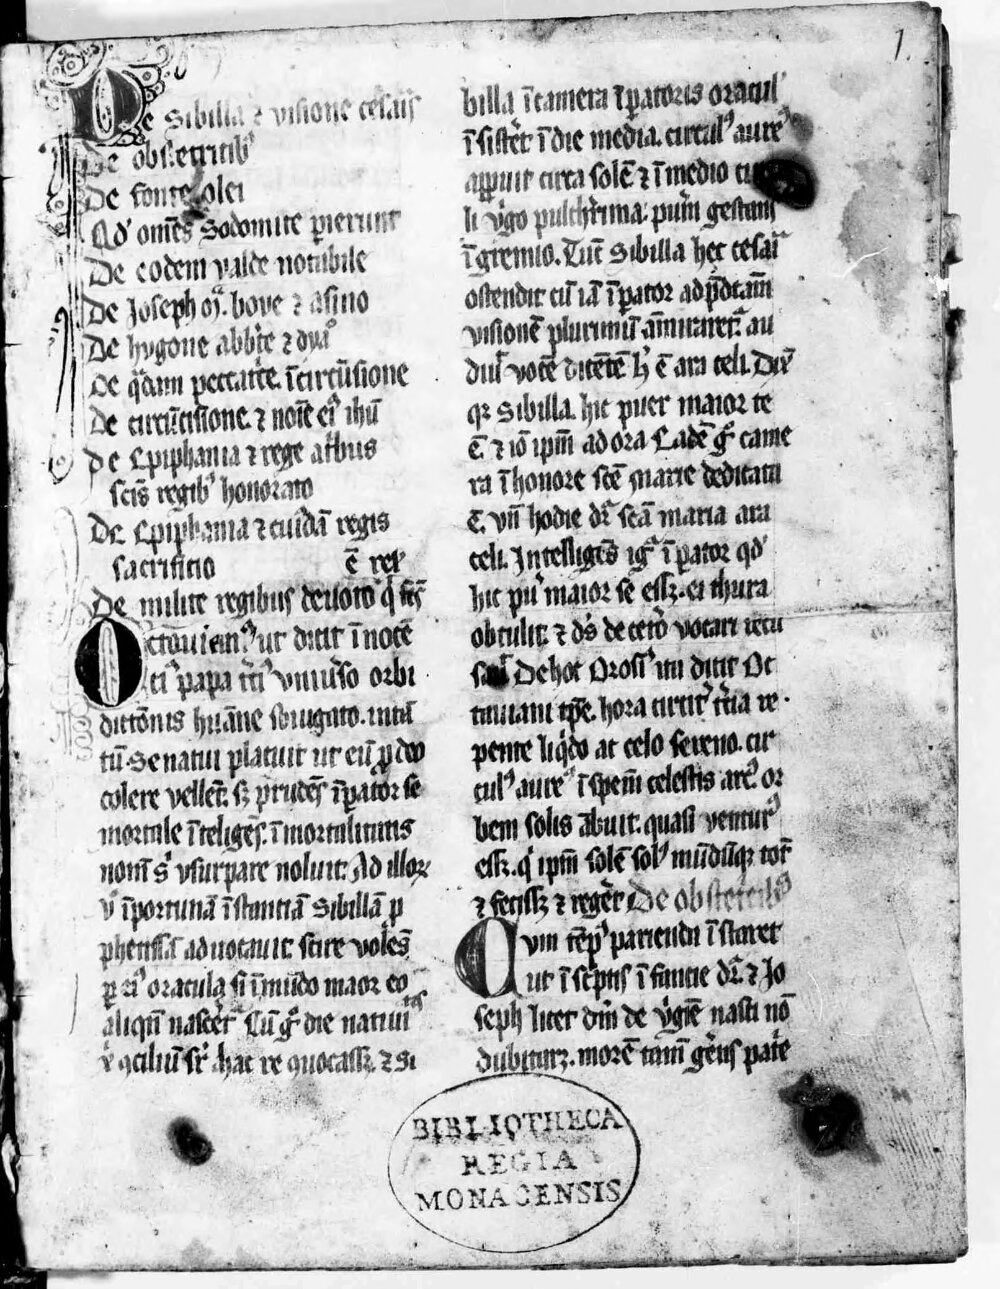 1.
De Sibilla ⁊ visione cesaris
De obstetricibꝰ
De fonte olei
Qd' om̄es Sodomite perierunt
De eodem valde notabile
De Joseph bove ⁊ asino
De hugone abb̄te ⁊
De q̄dam peccat̄ce. ī circūsione
De circūcisione. ⁊ noīe eiꝰ ihū
De Epiphania ⁊ rege
scīs regibꝰ honorato
De Epiphania ⁊ cuidā regis
sacrificio
De milite regibus deuoto
Octouianꝰ ut dicit īnocē
ciꝰ papa t̄ciꝰ vniu̓so orbi
dict̄onis huāne sb̓iugato. intā
tū Senatui placuit ut eū p̱ deo
colere vellet. sꝫ prudēs īp̱ator se
mortale īteligēs. īmortalitatis
nom̄ sꝰ vsurpare noluit. Ad illoꝝ
v̓ īportunā īstanciā Sibillā ꝓ
phetissā aduocauit. scire volēs
p̱ eiꝰ oracula, si ī mūdo maior eo
aliqn̄ nascer̄et̓ Cū g̓ die natiui
ꝯciliū sr̄ hac re ꝯuocassꝫ. ⁊ si
billa ī camera īp̱atoris oracul'
īsister̄et ī die media. circulꝰ aureꝰ
apparuit circa solē ⁊ ī medio circu
li v̓go pulch̓rima. pueꝝ gestans
ī gremio. Tūc Sibilla hec cesari
ostendit cū iā īp̱ator ad p̄dcām
visionē plurimū am̄iraret̓. au
diuit vocē dicētē h̓ ē ara celi. Dix̄
qꝫ Sibilla. hic puer maior te
ē. ⁊ iō ip̄m adora Eadē g̓ came
ra ī honore scē marie dedicata
ē. vn̄ hodie dr̄ scā maria ara
celi. Intelligēs ig̓ īp̱ator qd'
hic pu̓ maior se essꝫ. ei thura
obtulit. ⁊ dꝰs de cet̓o vocari recu
sauit De hoc Orosiꝰ ita dicit Oc
tauiani tp̄e. hora circit̓ t̓cia re
pente liq̓do ac celo sereno. cir
culꝰ aureꝰ ī sp̄em celestis arcꝰ or
bem solis ābiuit. quasi venturꝰ
essꝫ. q̓ ip̄m solē solꝰ mūdūqꝫ totū
⁊ fecissꝫ ⁊ reger̄et De obstetricibꝰ
Cvm tēpꝰ pariendi īstaret
ut ī septis ī fancie dr̄. ⁊ Jo
seph licet dm̄ de v̓gīe nasci nō
dubitaꝫ. morē tam̄ ger̄es pat̓e
BIBLIOTHECA
REGIA
MONACENSIS